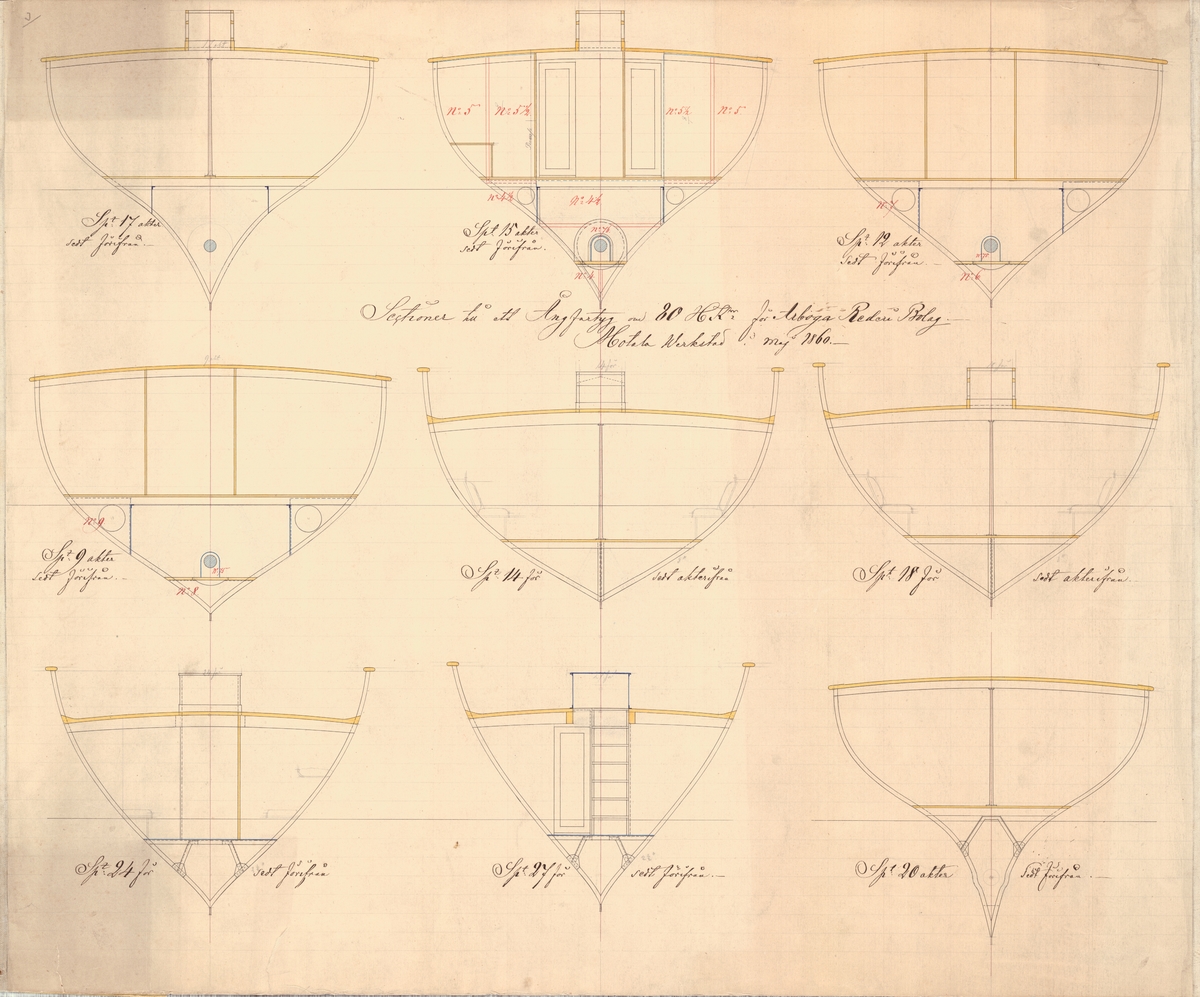 3
N:5 N:5½ N:5½ N:5
Spt 17 akter
sedt förifrån.
N:4½ N:4½
Spt 15 akter
sedt förifrån.
N:4
N:7
Spt 12 akter
sedt förifrån.
N:6
Sectioner till ett Ångfartyg om 80 H.Kr. för Arboga Rederi Bolag.
Motala Werkstad i maj 1860.
N:9
Spt 9 akter
sedt förifrån.
N:8
Spt 14 för sedt akterifrån
Spt 18 för sedt akterifrån.
Spt 24 för sedt förifrån
Spt 27 för sedt förifrån.
Spt 20 akter sedt förifrån.